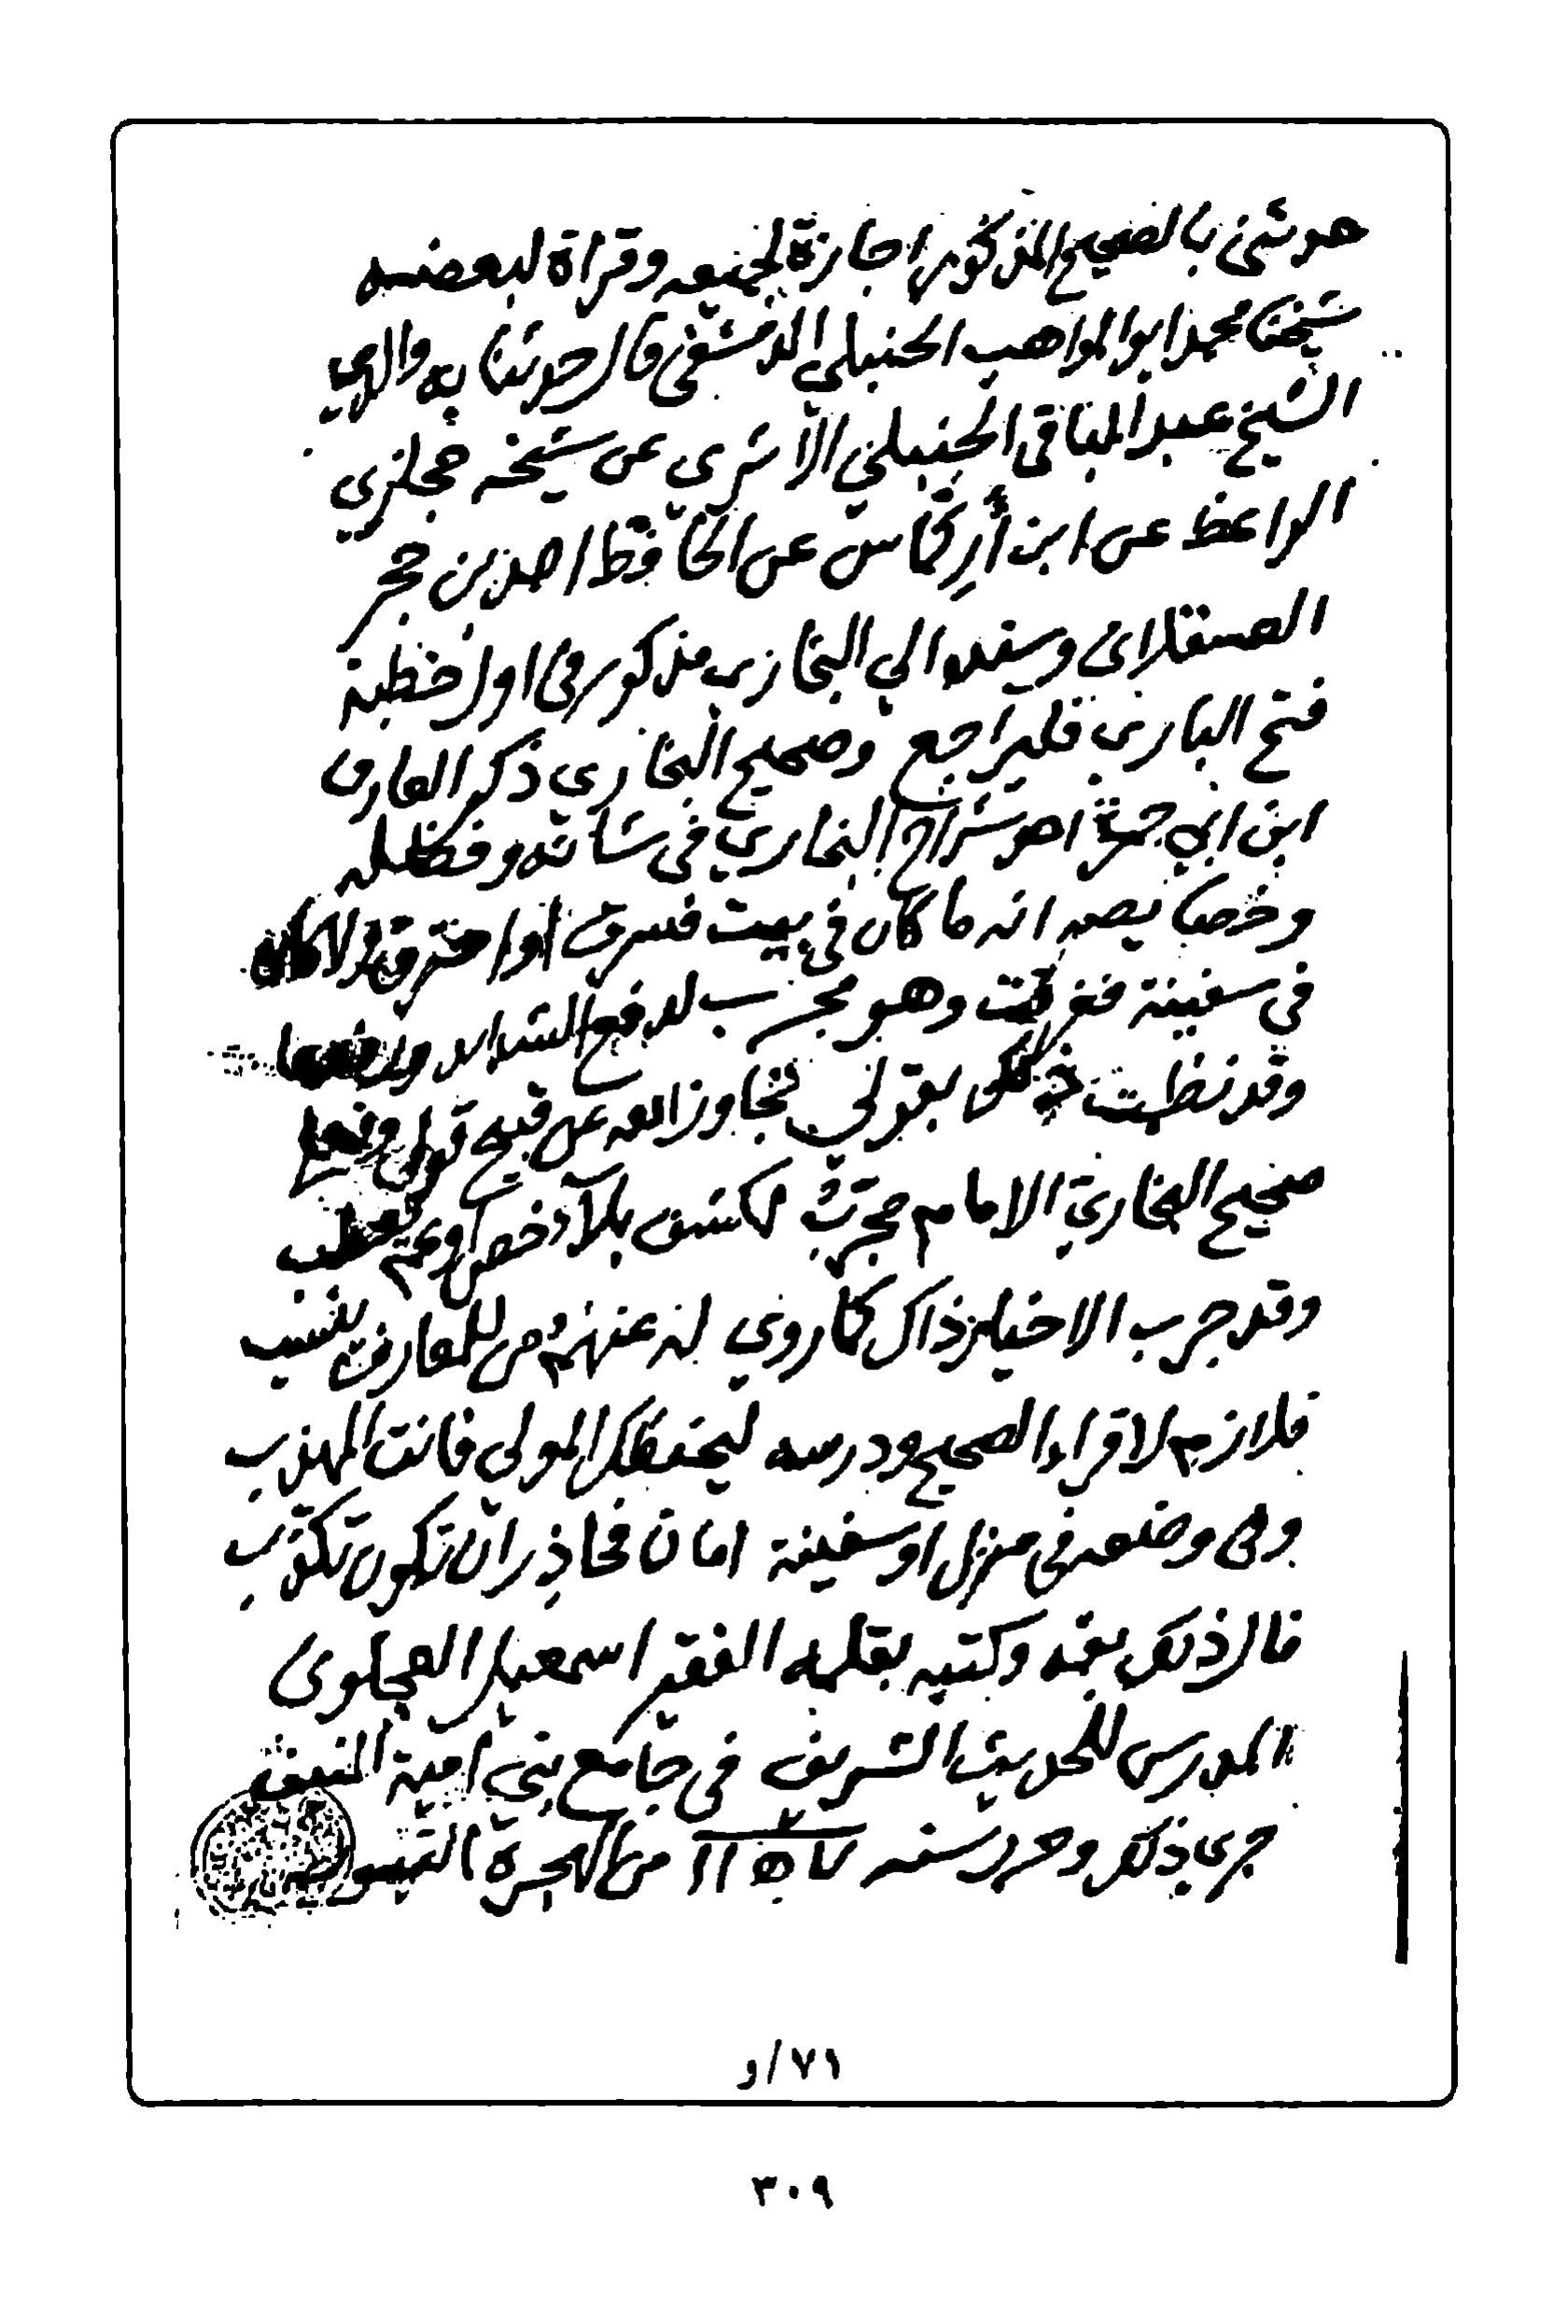 حدثني بالصحيح المذكور اجازة لجميعه وقراة لبعضه
شيخنا محمد ابو المواهب الحنبلي الدمشقي قال حدثنا به والدي
الشيخ عبد الباقي الحنبلي الاثري عن شيخه حجازي
الواعظ عن ابن أركماس عن الحافظ احمد بن حجر
العسقلاني وسنده الي البخاري مذكور في اول خطبة
فتح الباري فليراجع وصحيح البخاري ذكر العارف
ابن ابي جمرة احد شراح البخاري في شانه وفضله
وخصايصه انه ما كان في بيت فسرق او احترق ولا كان
في سفينة فغرقت وهو مجرب لدفع الشدايد
وقد نظمت ذلك بقولي تجاوز الله عن قبيح قولي وفعلي
صحيح البخاري الامام مجرب لكشف بلآ خص أو عم
وقد جرب الاخيار ذاك كما روي لنا عنهم من للمعارف ينسب
فلازم لاقراء الصحيح ودرسه ليحفظك المولى فانت المهذب
وفي وضعه في منزل او سفينة امان فحاذر ان تكون تكذب
قال ذلك بفمه وكتبه بقلمه الفقير اسمعيل العجلوني
المدرس للحديث الشريف في جامع بني امية المنيف
جرى ذلك وحرر سنة ١١٥٧ من الهجرة النبوية
٧١/و
٣٠٩